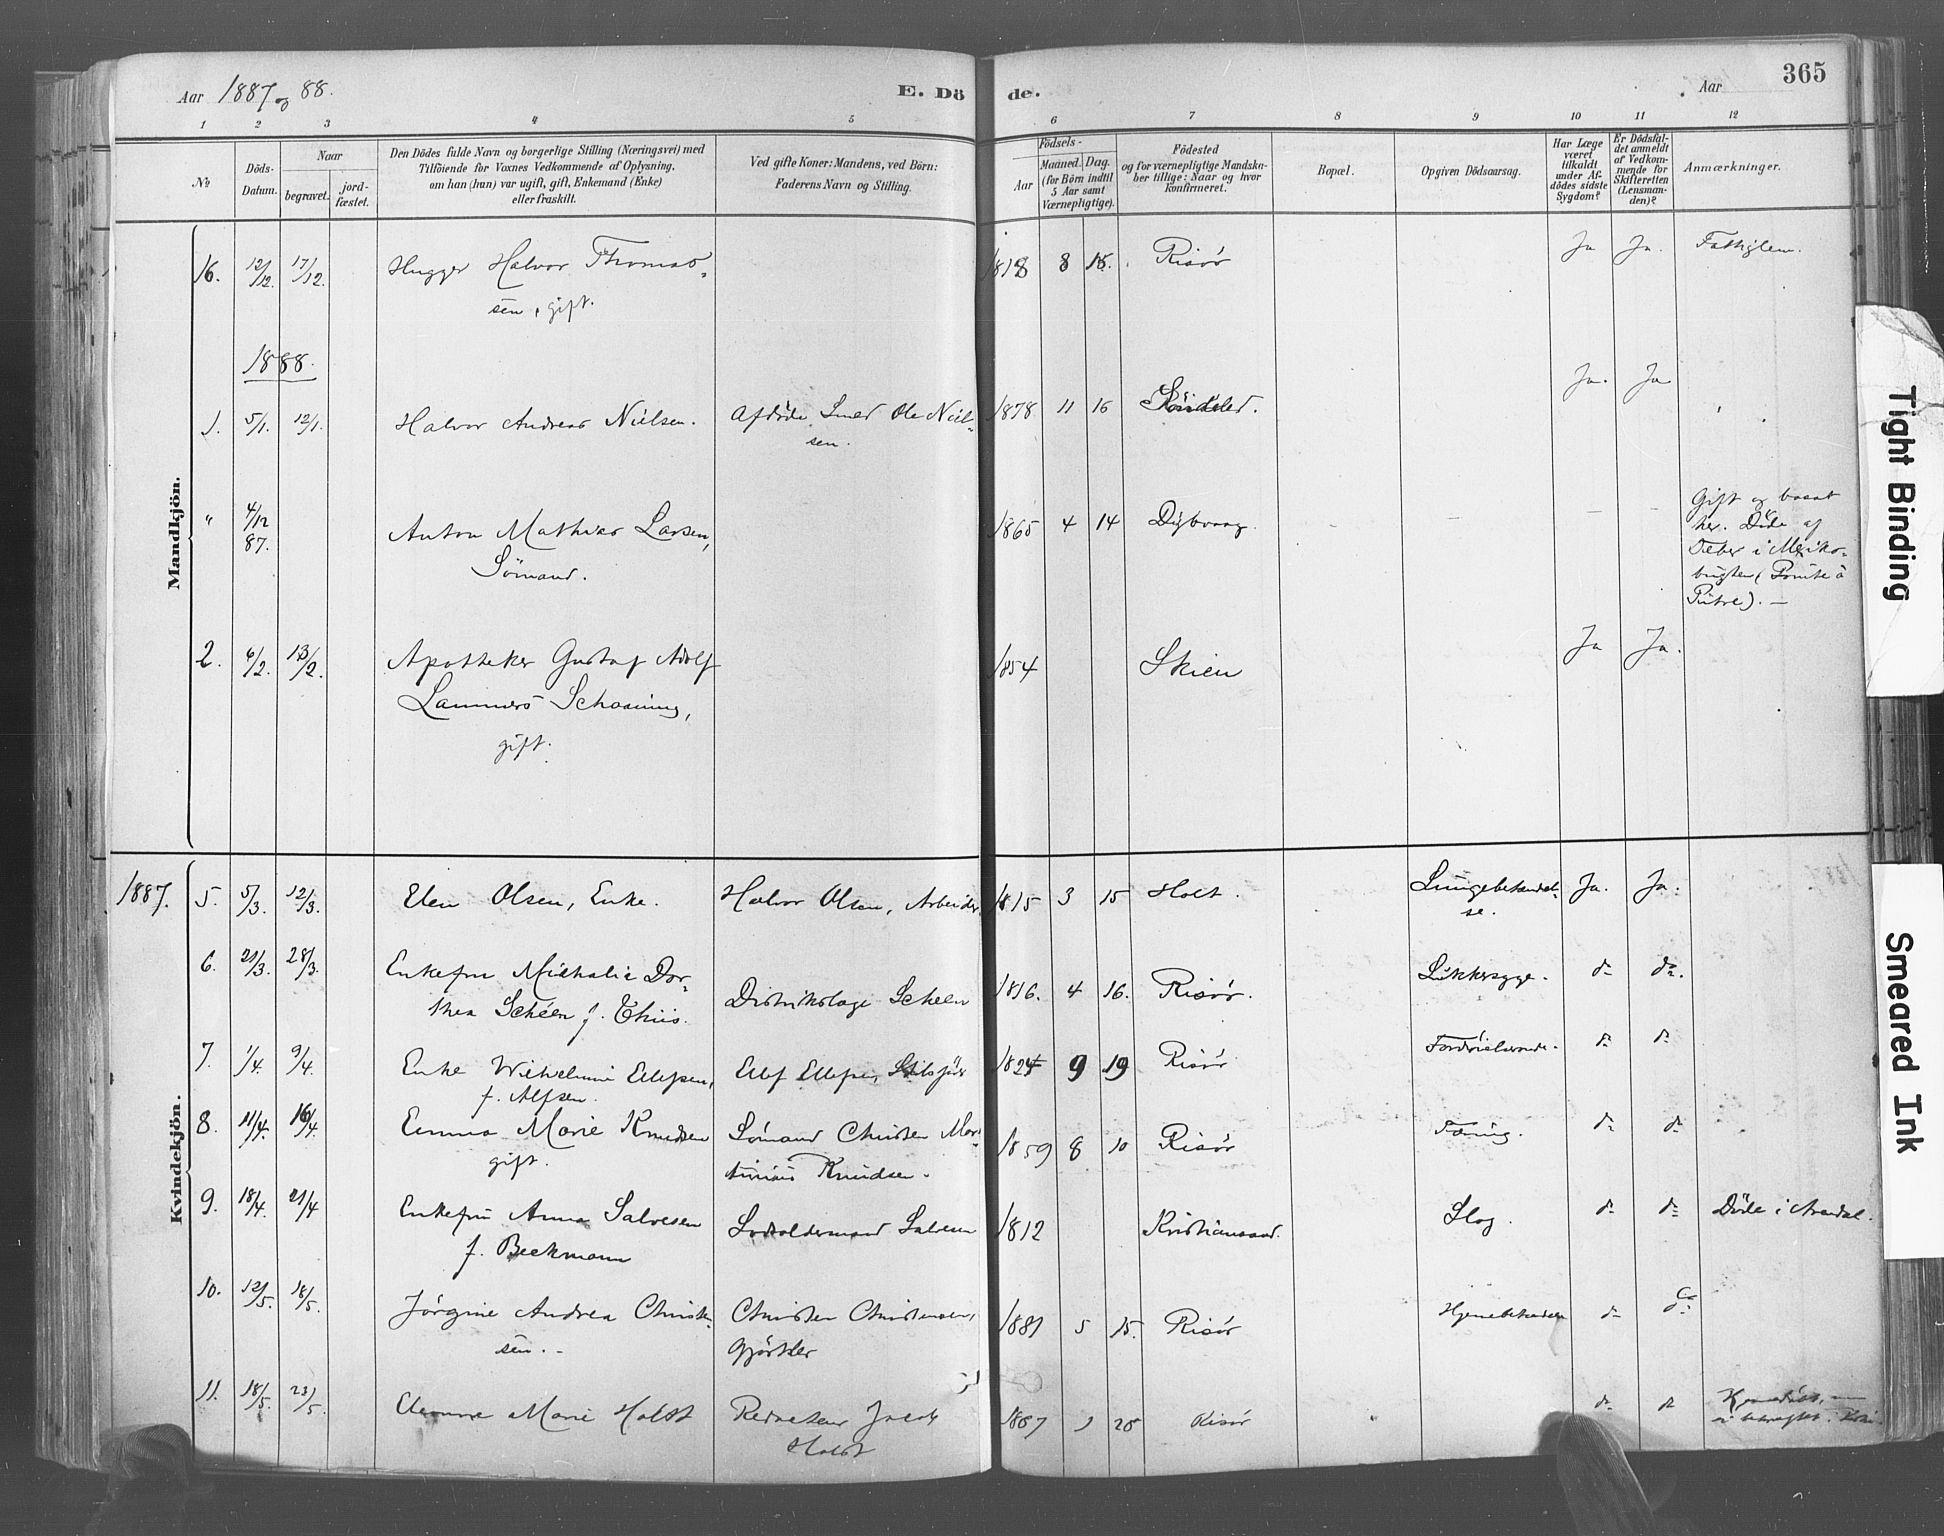 Aar 1887 og 88.
E. Dö
de.
Aar
365
1 2 3 4 5 6 7 8 9 10 11 12
№
Döds-
Datum.
Naar
begravet.
jord-
fæstet.
Den Dödes fulde Navn og borgerlige Stilling (Næringsvei) med
Tilföiende for Voxnes Vedkommende af Oplysning,
om han (hun) var ugift, gift, Enkemand (Enke)
eller fraskilt.
Ved gifte Koner: Mandens, ved Börn:
Faderens Navn og Stilling.
Födsels-
Aar
Maaned. Dag.
(for Börn indtil
5 Aar samt
Værnepligtige).
Födested
og for værnepligtige Mandskaber tillige: Naar og hvor
konfirmeret.
Bopæl.
Opgiven Dödsaarsag.
Har Læge
været
tilkaldt
under Af-
dödes sidste
Sygdom?
Er Dödsfal-
det anmeldt
af Vedkom-
mende for
Skifteretten
(Lensman-
den)?
Anmærkninger.
Mandkjön.
16. 12/12. 17/12. Hugger Halvor Thomas-
sen, gift.
1818 8 15. Risör Ja Ja. Fattiglem.
1888.
1. 5/1. 12/1. Halvor Andreas Nielsen. Afdöde Smed Ole Niel-
sen.
1878 11 16 Söndeled. Ja. Ja
" 4/12 87. Anton Mathias Larsen,
Sömand.
1865 4 14 Dybvaag. — — — —
Gift og bosat
her. Döde af
Feber i Mexiko-
bugten (Pointe à
Pitre). —
2. 6/2. 13/2. Apotheker Gustaf Adolf
Lammers Schoaning,
gift.
1854 Skien Ja Ja.
Kvindekjön.
1887. 5. 5/3. 12/3. Elen Olsen, Enke. Halvor Olsen, Arbeider 1815 3 15 Holt. Lungebetændel-
se. Ja. Ja.
6. 21/3. 28/3. Enkefru Michalie Dor-
thea Schéen f. Thiis.
Distriktslæge Scheen 1816. 4 16. Risör. Sukkersyge. do do.
7. 1/4. 9/4. Enke Wilhelmine Ellefsen,
f. Alfsen.
Ellef Ellefsen, 1824 9 19 Risör do do
8. 11/4. 16/4. Emma Marie Knudsen
gift.
Sömand Christen Mar-
tinius Knudsen.
1859 8 10 Risör Tæring. do do
9. 18/4. 21/4 Enkefru Anna Salvesen
f. Beckmann
Lodsoldermand Salvesen 1812 Kristianssand. Slag do do Döde i Arendal.
10. 12/5. 18/5. Jörgine Andrea Christen-
sen. -
Christen Christensen,
Gjörtler
1881 5 15. Risör Hjernebetændelse do do
11. 18/5. 23/5. Marie Holst Redacteur Jacob
Holst
1887 1 28 Risör do do
Tight Binding
Smeared Ink